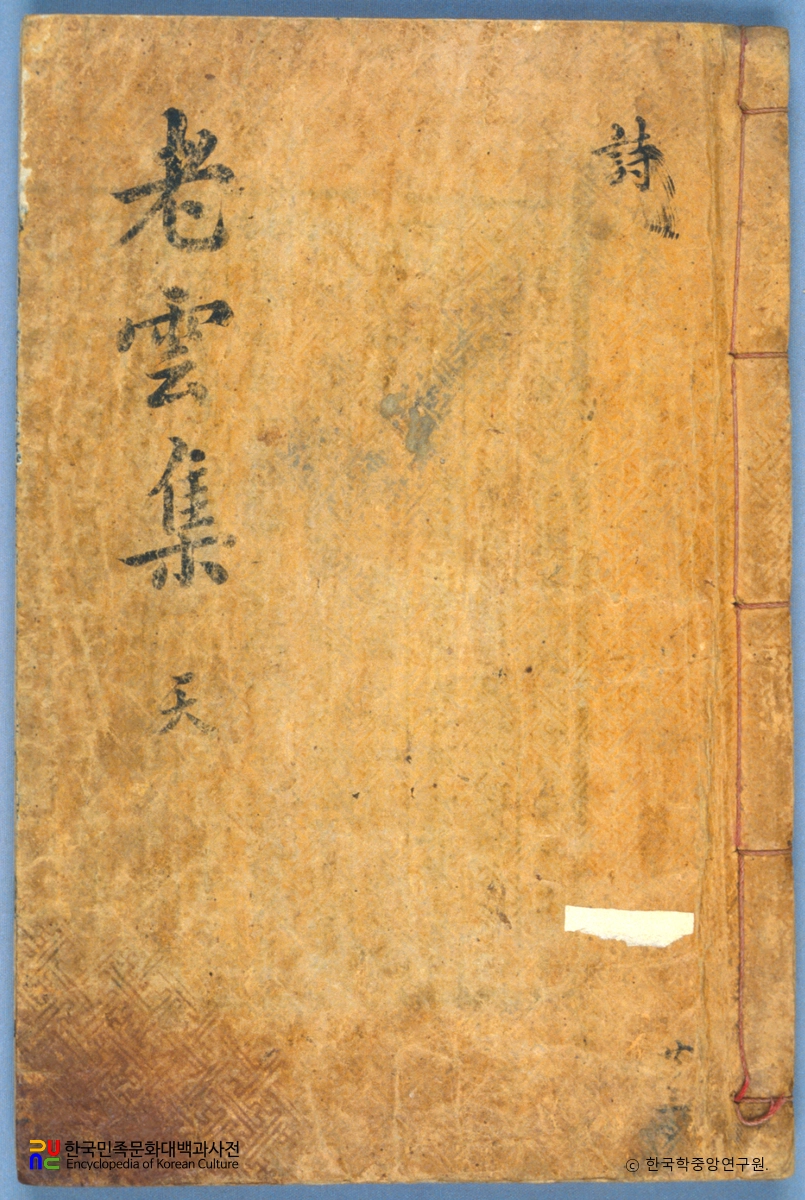 詩
老雲集 天
한국민족문화대백과사전
Encyclopedia of Korean Culture
ⓒ 한국학중앙연구원.